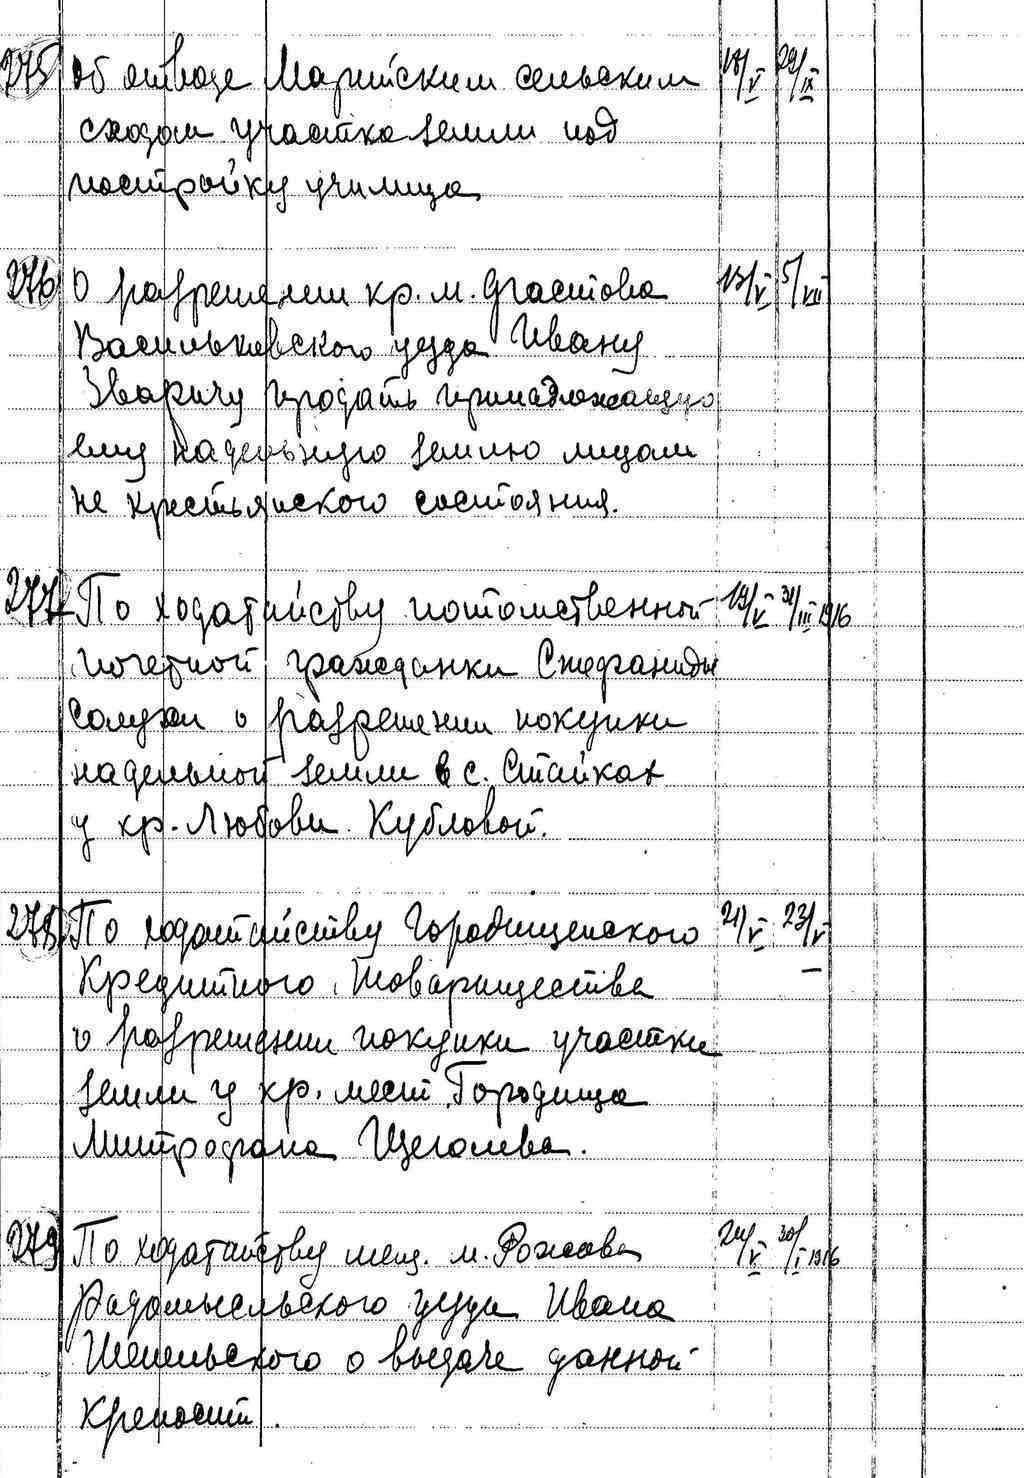 275 Об отводе Марийским сельским 18/V 29/IX
сходом участка земли под
постройку училища
276 О разрешении кр. м. Фастова 13/V 5/VII
Васильковского уезда Ивану
Зваричу продать принадлежащую
ему надельную землю лицам
не крестьянского состояния.
277 По ходатайству потомственной 19/V 31/III 1916
почетной гражданки Стефаниды
о разрешении покупки
надельной земли в с. Стайках
у кр. Любови Кубловой.
278 По ходатайству Городищенского 21/V 23/V
Кредитного Товарищества –
о разрешении покупки участка
земли у кр. мест. Городища
Митрофана Щеголева.
279 По ходатайству мещ. м. Рожева 24/V 30/I 1916
Радомысльского уезда Ивана
о выдаче данной
крепости.